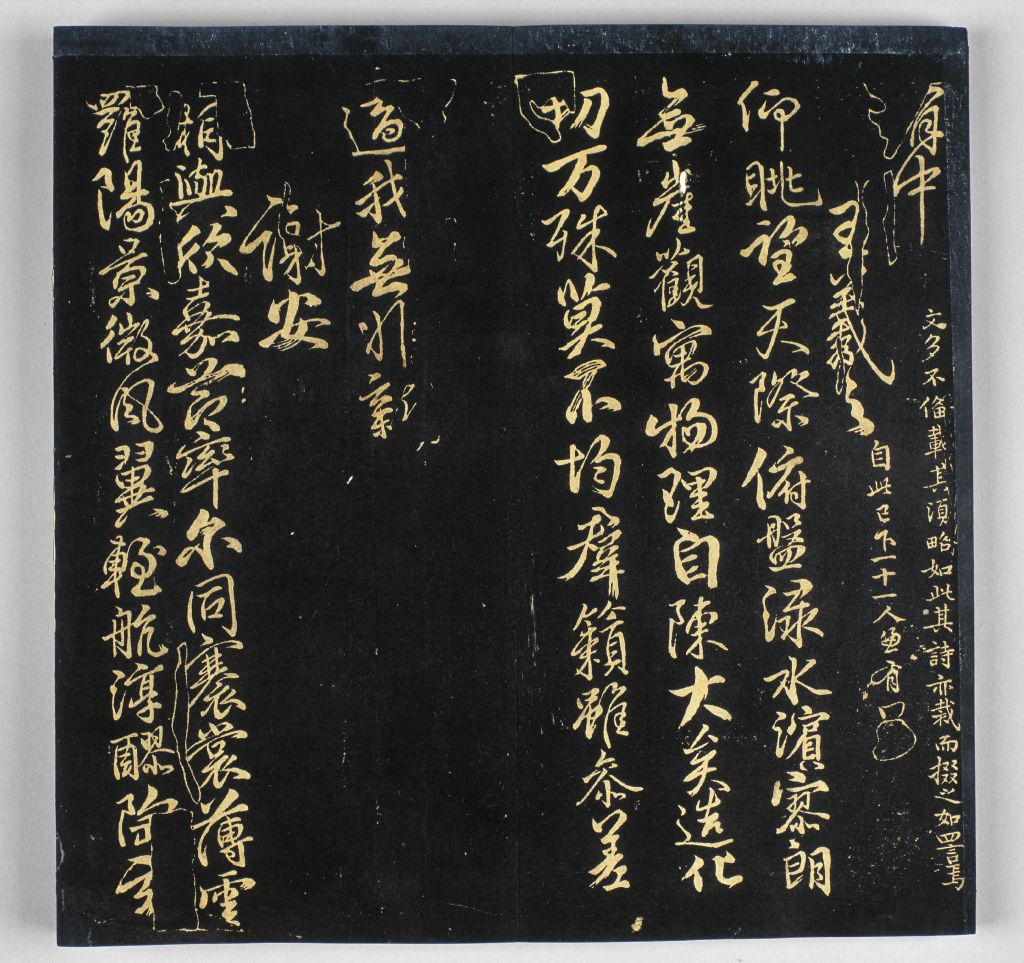 中 文多不俻載其須略如此其詩亦裁而掇之如四言焉
王羲之 自此已下一十一人兼有
仰眺望天際俯盤淥水濱寥朗
無崖觀寓物理自陳大矣造化
切万殊莫不均群籟雖參差
適我無非新
謝安
相與欣嘉節率尔同褰裳薄雲
羅陽景微風翼輕航淳醪陶玄